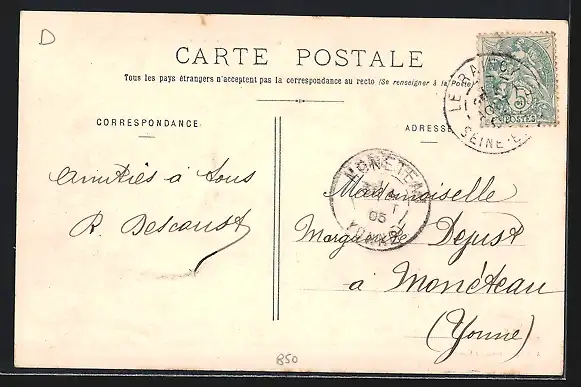 D
CARTE POSTALE
Tous les pays étrangers n'acceptent pas la correspondance au recto (Se renseigner à la Poste)
CORRESPONDANCE
ADRESSE
LE RAINCY
SEINE-ET
POSTES
MONETEAU
05
YONNE
Amitiés à tous
R. Descaust
Mademoiselle
Marguerite Dejust
à Monéteau
(Yonne)
850